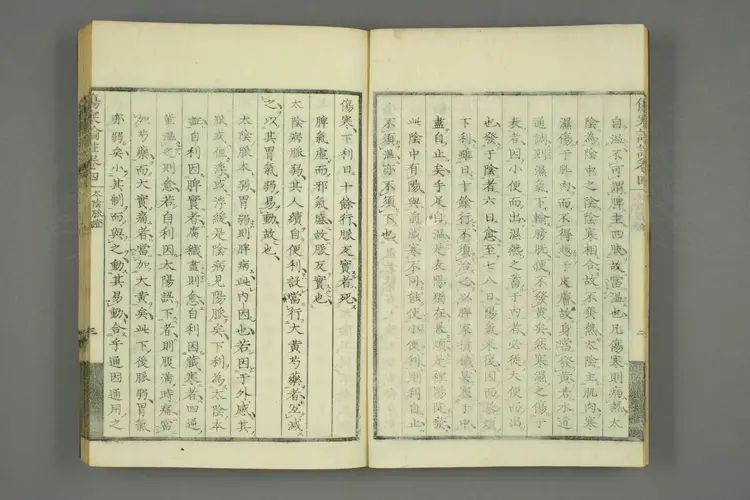 自溫不可謂脾主四肢故當溫也凡傷寒則病熱太
陰為陰中之陰陰寒相合故不發熱太陰主肌肉寒
濕傷于肌肉而不得越于皮膚故身當發黃若水道
通調則濕氣下輸膀胱便不發黃矣然寒濕之傷于
表者因小便而出濕熱之畜于內者必從大便而出
也發于陰者六日愈至七八日陽氣來復因而暴煩
下利雖日十餘行不須治之以脾家積穢臭塞于中
盡自止矣手足自溫是表陽猶在暴煩是裡陽陡發
此陰中有陽與前藏寒不同能使小便利則利自止
不須溫亦不須下也
傷寒下利日十餘行脈反實者死
脾氣虛而邪氣盛故脈反實也
太陰病脈弱其人續自便利設當行大黃芍藥者宜減
之以其胃氣弱易動故也
太陰脈本弱胃弱則脾病此內因也若因于外感其
脈或但浮或浮緩是陰病見陽脈矣下利為太陰本
症自利因脾實者腐穢盡則愈自利因藏寒者四逆
輩溫之則愈若自利因太陽誤下者則腹滿時痛當
加芍藥而大實痛者當加大黃矣此下後脈弱胃氣
亦弱矣小其制而與之動其易動合乎通因通用之
傷寒論註卷四
太陰脈證
三